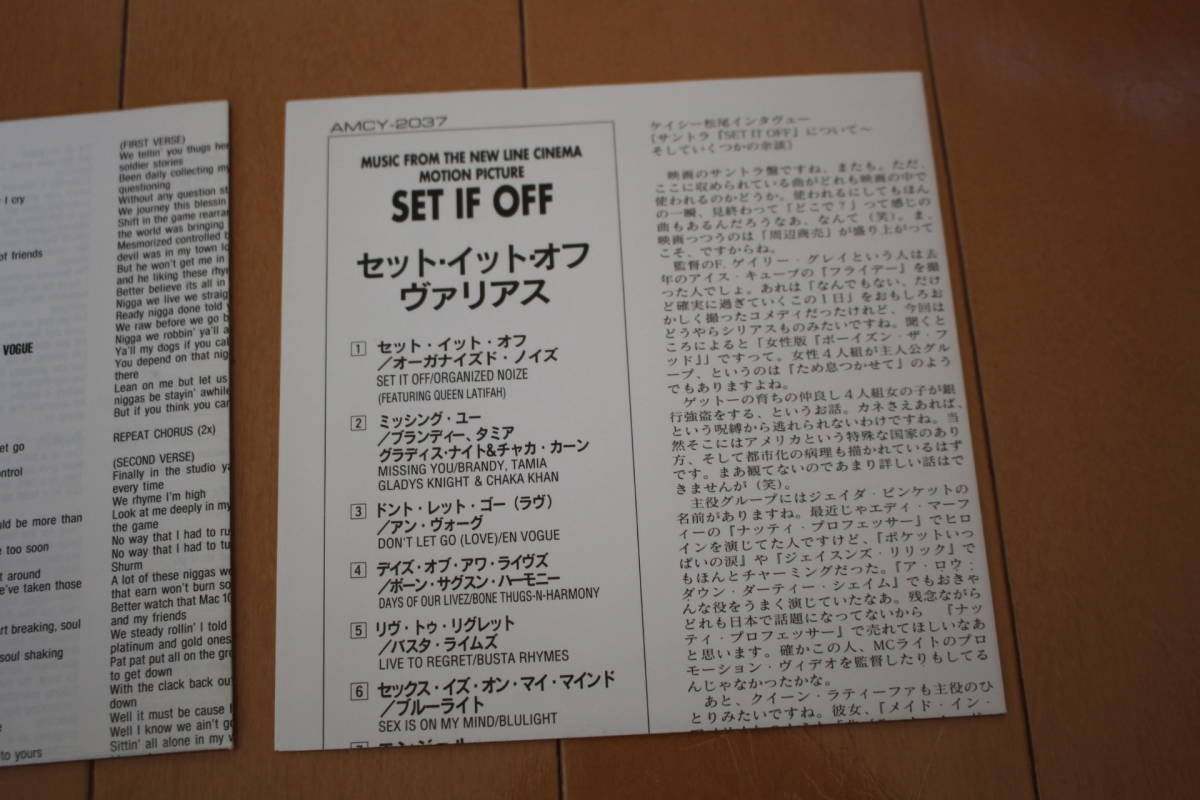 I cry
of friends
VOGUE
et go
ontrol
uld be more than
e too soon
t around
e've taken those
rt breaking, soul
soul shaking
e
to yours
(FIRST VERSE)
We tellin' you thugs her
soldier stories
Been daily collecting my
questioning
Without any question st
We journey this blessin
Shift in the game rearran
the world was bringing
Mesmorized controlled b
devil was in my town lo
But he won't get me in
and he liking these rhy
Better believe its all in
Nigga we live we straig
Ready nigga done told y
We raw before we go b
Nigga we robbin' ya'll a
Ya'll my dogs if you cal
You depend on that nig
there
Lean on me but let us
niggas be stayin' awhile
But if you think you can
REPEAT CHORUS (2x)
(SECOND VERSE)
Finally in the studio ya
every time
We rhyme I'm high
Look at me deeply in my
the game
No way that I had to ru
No way that I had to tu
Shurm
A lot of these niggas w
that earn won't burn so
Better watch that Mac 10
and my friends
We steady rollin' I told
platinum and gold ones
Pat pat put all on the gr
to get down
With the clack back ou
down
Well it must be cause I
Well I know we ain't g
Sittin' all alone in my v
AMCY-2037
MUSIC FROM THE NEW LINE CINEMA
MOTION PICTURE
SET IF OFF
セット・イット・オフ
ヴァリアス
1 セット・イット・オフ
／オーガナイズド・ノイズ
SET IT OFF/ORGANIZED NOIZE
(FEATURING QUEEN LATIFAH)
2 ミッシング・ユー
／ブランディー、タミア
グラディス・ナイト&チャカ・カーン
MISSING YOU/BRANDY, TAMIA
GLADYS KNIGHT & CHAKA KHAN
3 ドント・レット・ゴー（ラヴ）
／アン・ヴォーグ
DON'T LET GO (LOVE)/EN VOGUE
4 デイズ・オブ・アワ・ライヴズ
／ボーン・サグズン・ハーモニー
DAYS OF OUR LIVEZ/BONE THUGS-N-HARMONY
5 リヴ・トゥ・リグレット
／バスタ・ライムズ
LIVE TO REGRET/BUSTA RHYMES
6 セックス・イズ・オン・マイ・マインド
／ブルーライト
SEX IS ON MY MIND/BLULIGHT
7 エンジェル
ケイシー松尾インタヴュー
［サントラ『SET IT OFF』について〜
そしていくつかの余談］
映画のサントラ盤ですね、またも。ただ、
ここに収められている曲がどれも映画の中で
使われるのかどうか。使われるにしてもほん
の一瞬、見終わって「どこで？」って感じの
曲もあるんだろうなあ、なんて（笑）。ま、
映画っつうのは「周辺商売」が盛り上がって
こそ、ですからね。
監督のF. ゲイリー・グレイという人は去
年のアイス・キューブの『フライデー』を撮
った人でしょ。あれは「なんでもない、だけ
ど確実に過ぎていくこの1日」をおもしろお
かしく撮ったコメディだったけれど、今回は
どうやらシリアスものみたいですね。聞くと
ころによると「女性版『ボーイズン・ザ・フ
ッド』」ですって。女性4人組が主人公グル
ープ、というのは『ため息つかせて』のよう
でもありますよね。
ゲットーの育ちの仲良し4人組女の子が銀
行強盗をする、というお話。カネさえあれば、
という呪縛から逃れられないわけですね。当
然そこにはアメリカという特殊な国家のあり
方、そして都市化の病理も描かれているはず
です。まあ観てないのであまり詳しい話はで
きませんが（笑）。
主役グループにはジェイダ・ピンケットの
名前がありますね。最近じゃエディ・マーフ
ィーの『ナッティ・プロフェッサー』でヒロ
インを演じてた人ですけど、『ポケットいっ
ぱいの涙』や『ジェイスンズ・リリック』で
もほんとチャーミングだった。『ア・ロウ・
ダウン・ダーティー・シェイム』でもおきゃ
んな役をうまく演じていたなあ。残念ながら
どれも日本で話題になってないから『ナッ
ティ・プロフェッサー』で売れてほしいなあ
と思います。確かこの人、MCライトのプロ
モーション・ヴィデオを監督したりもしてる
んじゃなかったかな。
あと、クイーン・ラティーファも主役のひ
とりみたいですね。彼女、『メイド・イン・